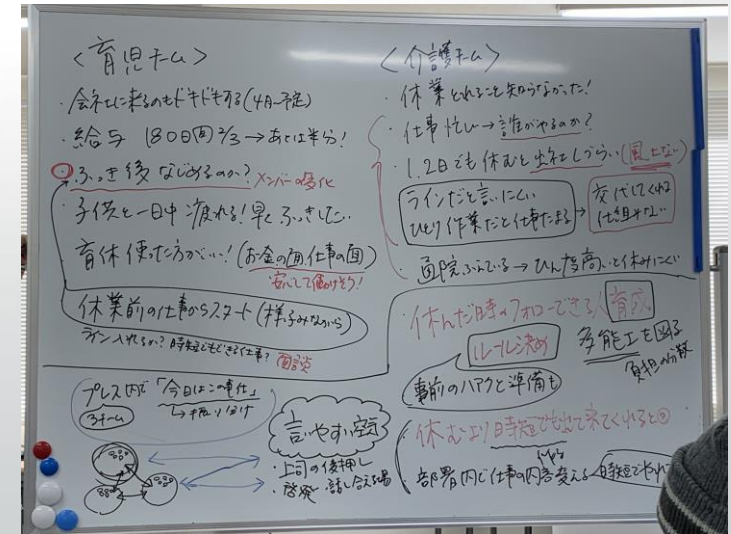 <育児チーム>
・会社に来るのもドキドキする(4月~予定)
・給与 180日間2/3→あとは半分!
・ふっき後なじめるのか? メンバーの変化
・子供と一日中疲れる!早くふっきしたい
・育休使った方がいい!(お金の面、仕事の面)
安心して働けそう!
休業前の仕事からスタート(様子みながら)
ライン入れるか? 時短でもできる仕事? 面談
プレス内で「今日はこの仕事」
3チーム
→振り分け
言いやすい空気
・上司の後押し
・啓発・話し合える場
<介護チーム>
・休業とれること知らなかった!
・仕事忙い→誰がやるのか?
・1,2日でも休むと出社しづらい(風土ない)
ラインだと言いにくい
ひとり作業だと仕事たまる
→交代してくれる
仕組みない
・通院ふえている→ひん度高いと休みにくい
・休んだ時のフォローできる人育成
ルール決め
多能工を図る
負担の分散
事前のハアクと準備も
・休むより時短でも出て来てくれると
・部署内で仕事の内容変える